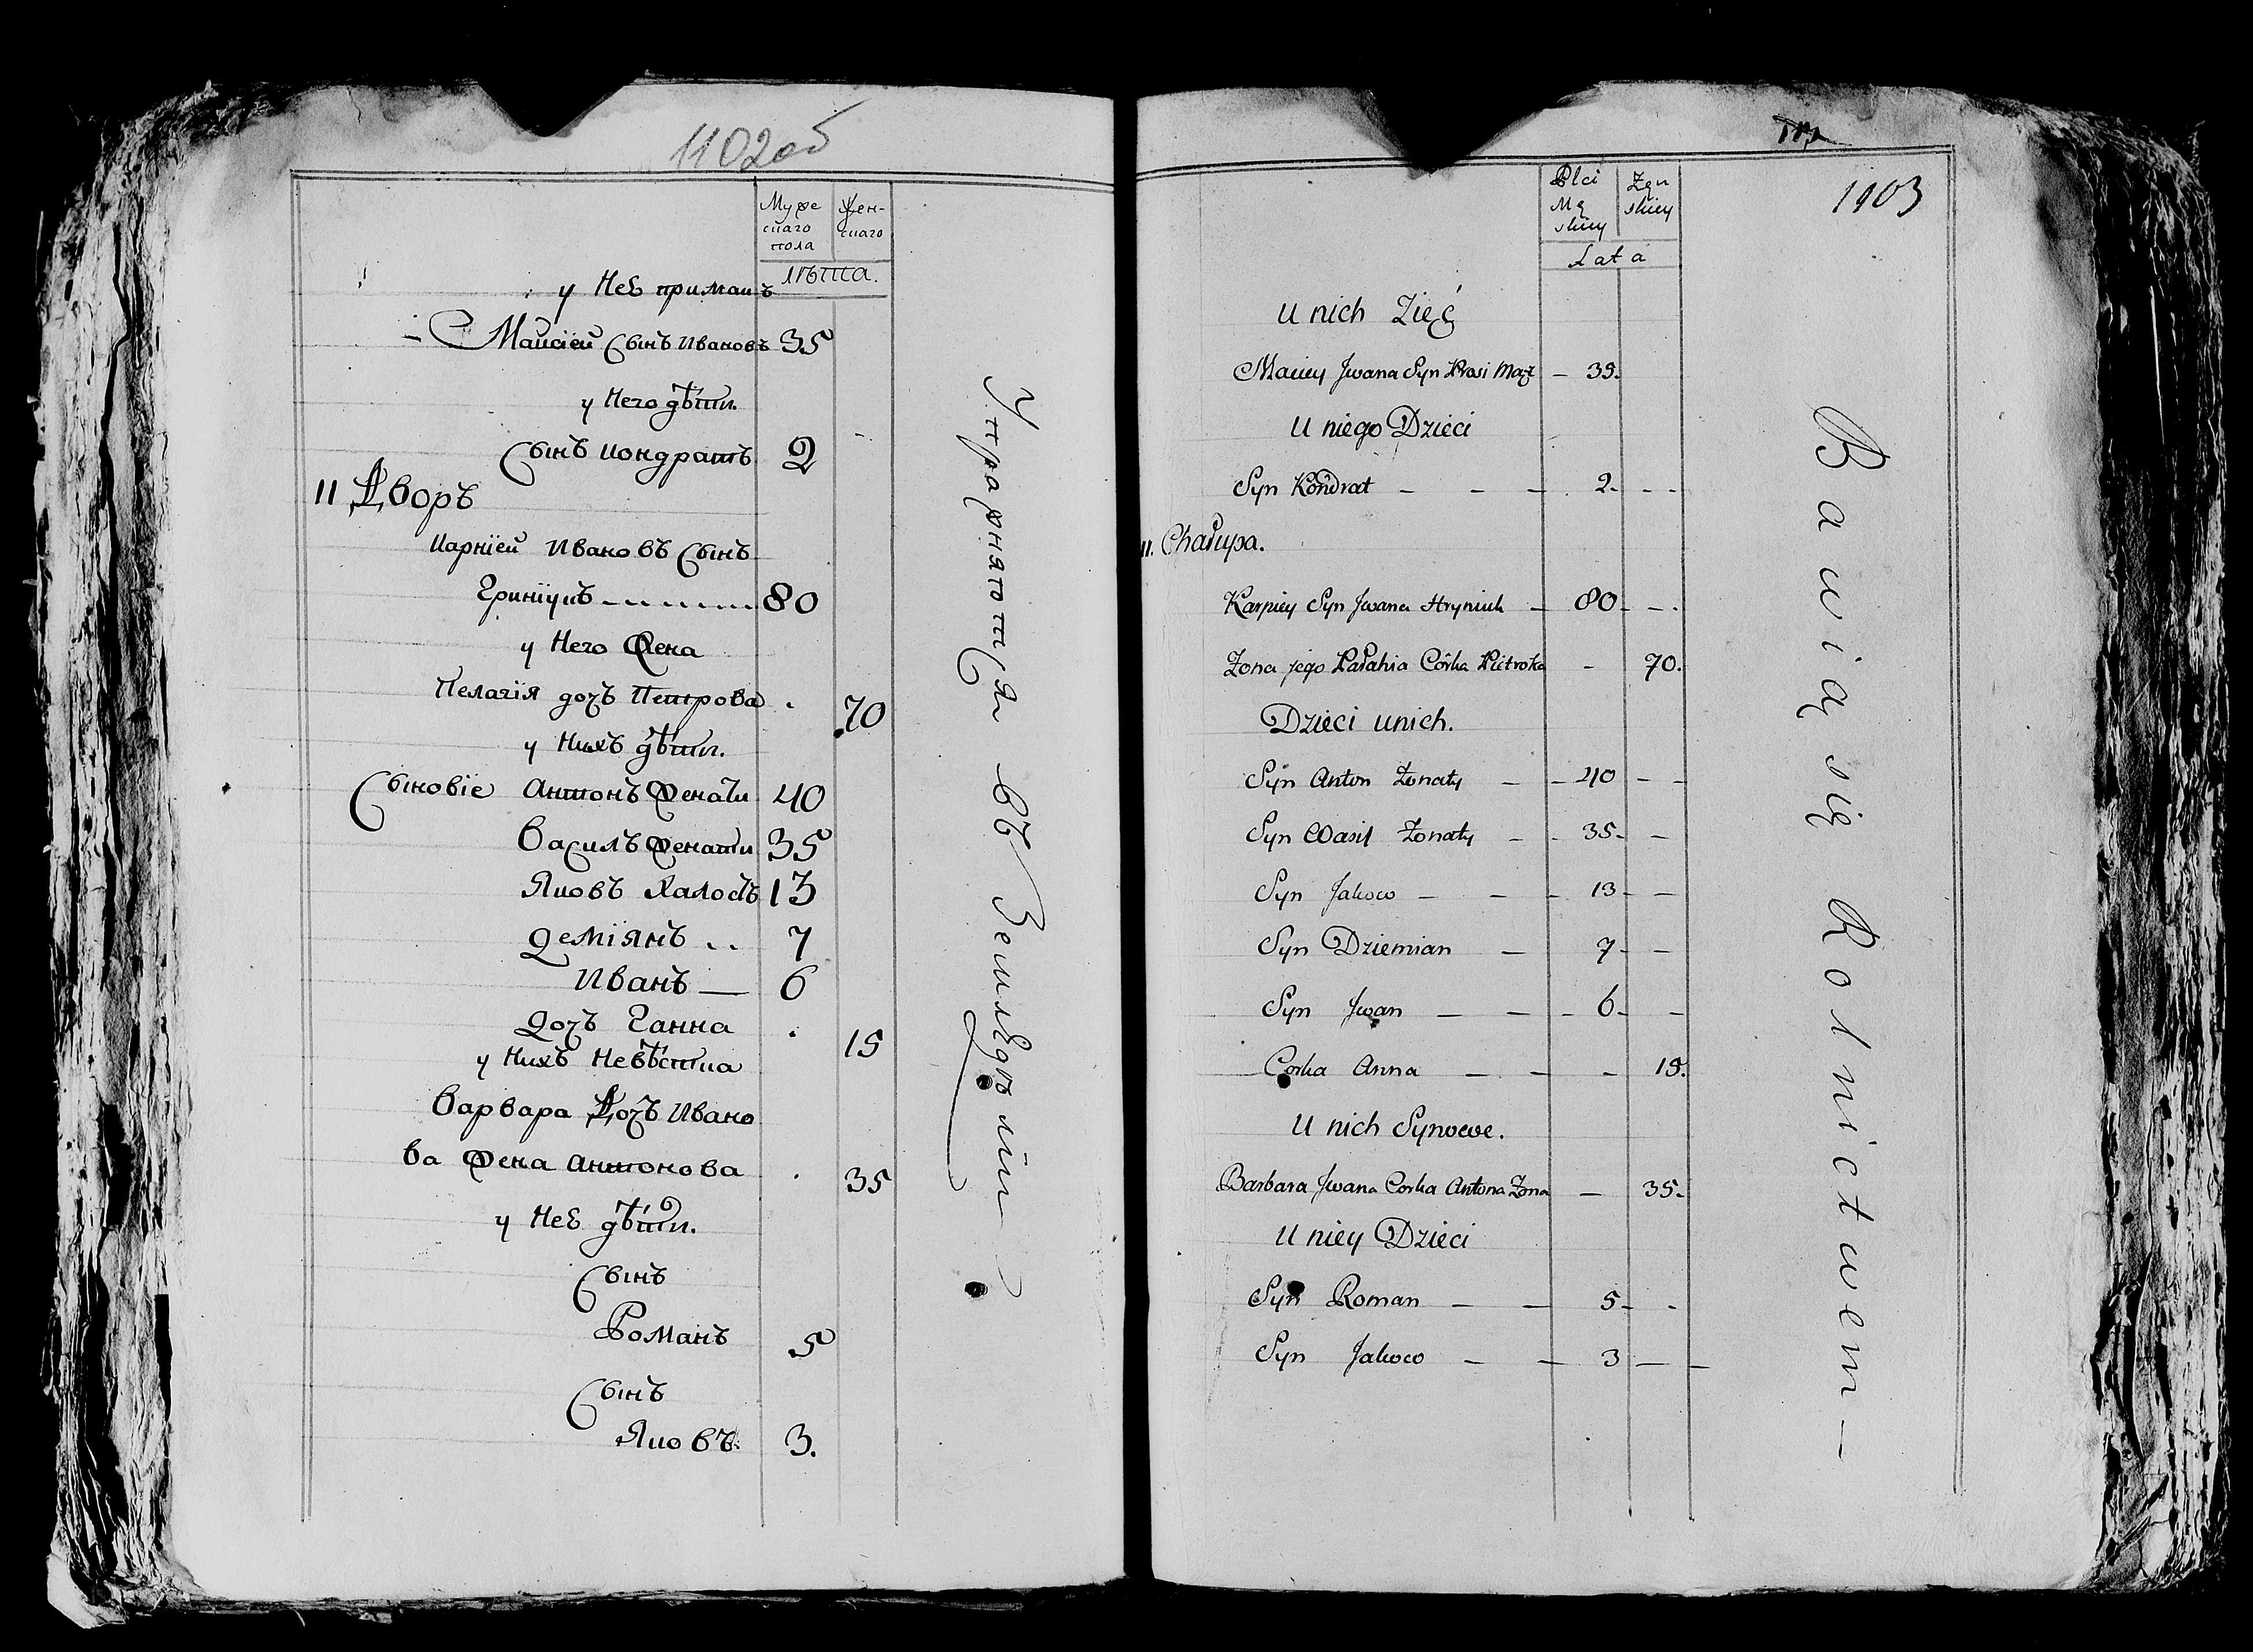 1102об
Муже
скаго
пола
Жен-
скаго
лѣта.
у Неѣ приманъ
Маисіей Сынъ Ивановъ 35
у Него дѣти.
Сынъ Кондратъ 2
11 Дворъ
Карпіей Ивановъ Сынъ
Гриніукъ 80
у Него Жена
Пелагія дочъ Петрова 70
у Нихъ дѣти.
Сыновіе Антонъ Женати 40
Василъ Женати 35
Яковъ Халостъ 13
Деміянъ 7
Иванъ — 6
Дочъ Ганна 15
у Нихъ Невѣстка
Варвара Дочъ Ивано
ва Жена Антонова 35
у Неѣ дѣти.
Сынъ
Романъ 5
Сынъ
Яковъ 3.
Упражнятотся въ Земледѣліи
1103
Plci
Mę
skiey
Zen
skiey
Lata
U nich Zięć
Maciey Jwana Syn Prosi Mąż — 35.
U niego Dzieci
Syn Kondrat — — — 2. - -
11. Chałupa.
Karpiey Syn Jwana Hryniuk — 80. — .
Zona jego Pałahia Córka Pietroka - 70.
Dzieci unich.
Syn Anton Zonaty — — 40 — —
Syn Wasil Zonaty — - 35. —
Syn Jakow — — — 13 — —
Syn Dziemian — 7 - —
Syn Jwan — — - 6. —
Corka Anna — — — 15.
U nich Synowe.
Barbara Jwana Corka Antona Zona — 35.
U niey Dzieci
Syn Roman — — 5 - -
Syn Jakow — — 3 — —
Bawią się Rolnictwem —